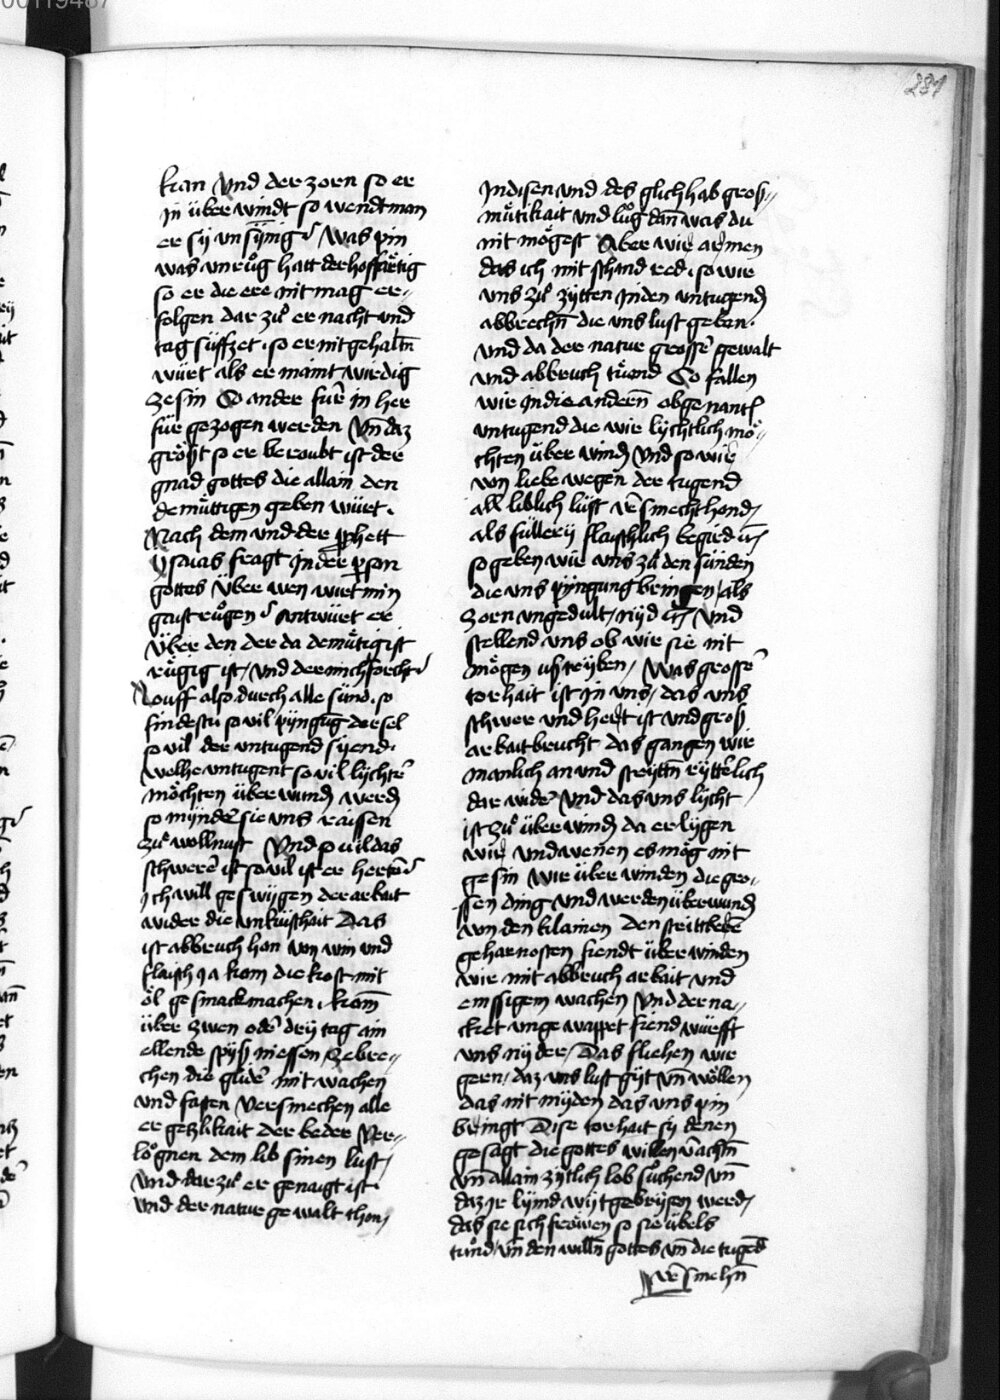 00119487
281
kran Vnd der zorn so er
jn über windt so wendt man
er sÿ vnsÿnig Was pin
was vnrůg hatt der hoffärtig
so er die ere nit mag er-
folgen dar zů er nacht vnd
tag süffzet so er nit gehaltn̄
würt als er maint wirdig
ze sin So ander für in her
für gezogen werden Vn̄ daz
gröst so er beroubt ist der
gnad gottes die allain den
demüttigen geben würt.
Nach dem vnd der pphett
ysaias fragt jn der pson
gottes Über wen wirt min
gaist růgen antwürt er
Über den der da demütig ist
rügig ist / vnd der mich förcht
Louff also durch alle sünd. so
findestu so vil pÿngūg der sel
so vil der vntugend sÿend.
welhe vntugent so vil lÿchter
möchten über wund werd
so mÿnder sie vns raissen
zů wollnust Vnd so vil das
schwerer ist so vil ist er herter
jch will geswÿgen der arbait
wider die vnküschait Das
ist abbruch han von win vnd
flaisch ja kom die kost mit
öl gesmack machen. kom
über zwen oder drÿ tag ain
ellende spÿß niessen Zebre-
chen die glider mit wachen
vnd fasten Versmechen alle
ergetzlikait der beder Ver-
lögnen dem lib sinen lust /
Vnd dar zů er genaigt ist.
vnd der natur gewalt thon /
Jn disen vnd des glich hab groß-
mütikait vnd lůg dan̄ was du
nit mögest Aber wir armen
das ich mit schand red. so wir
vns zů zÿtten jn den vntugend
abbrechn̄ die vns lust geben.
vnd da der natur grosser gewalt
vnd abbruch tůond So fallen
wir jn die andern̄ obgenant
vntugend die wir lÿchtlich mö-
chten über wind Vnd so wir
von liebe wegen der tugend
all liblich lüst versmecht hond /
als füllerÿ flaischlich begird etc
so geben wir vns zů den sünden
die vns pÿngung bringen / als
zorn vngedult / nÿd etc Vnd
stellend vns ob wir sie nit
mögen vß trÿben / Was grosser
torhait ist jn vns / das vns
schwer vnd hert ist vnd groß
arbait brucht das gangen wir
manlich an vnd streÿttn̄ rÿtterlich
dar wider Vnd das vns lÿcht
ist zů über wind da erlÿgen
wir vnd wenen es mög nit
gesin wir über winden die gro-
ssen ding vnd werden überwund
von den klainen Den streittberē
geharnosten fiendt über winden
wir mit abbruch arbait vnd
emssigem wachen Vnd der na-
cket vngewappet fiend würfft
vns nÿder / Das fliehen wir
gern / daz vns lust gÿt vn̄ wöllen
das nit mÿden das vns pin
bringt Dise torhait sÿ denen
gesagt die gottes willen v̄achtn̄
vn̄ allain zÿtlich lob sůchend vn̄
daz jr lÿmd wÿt gebrÿsen werd /
das sie sich fröwen so sie übels
tůnd / vn̄ den willn̄ gottes vn̄ die tugēd
versmehn̄